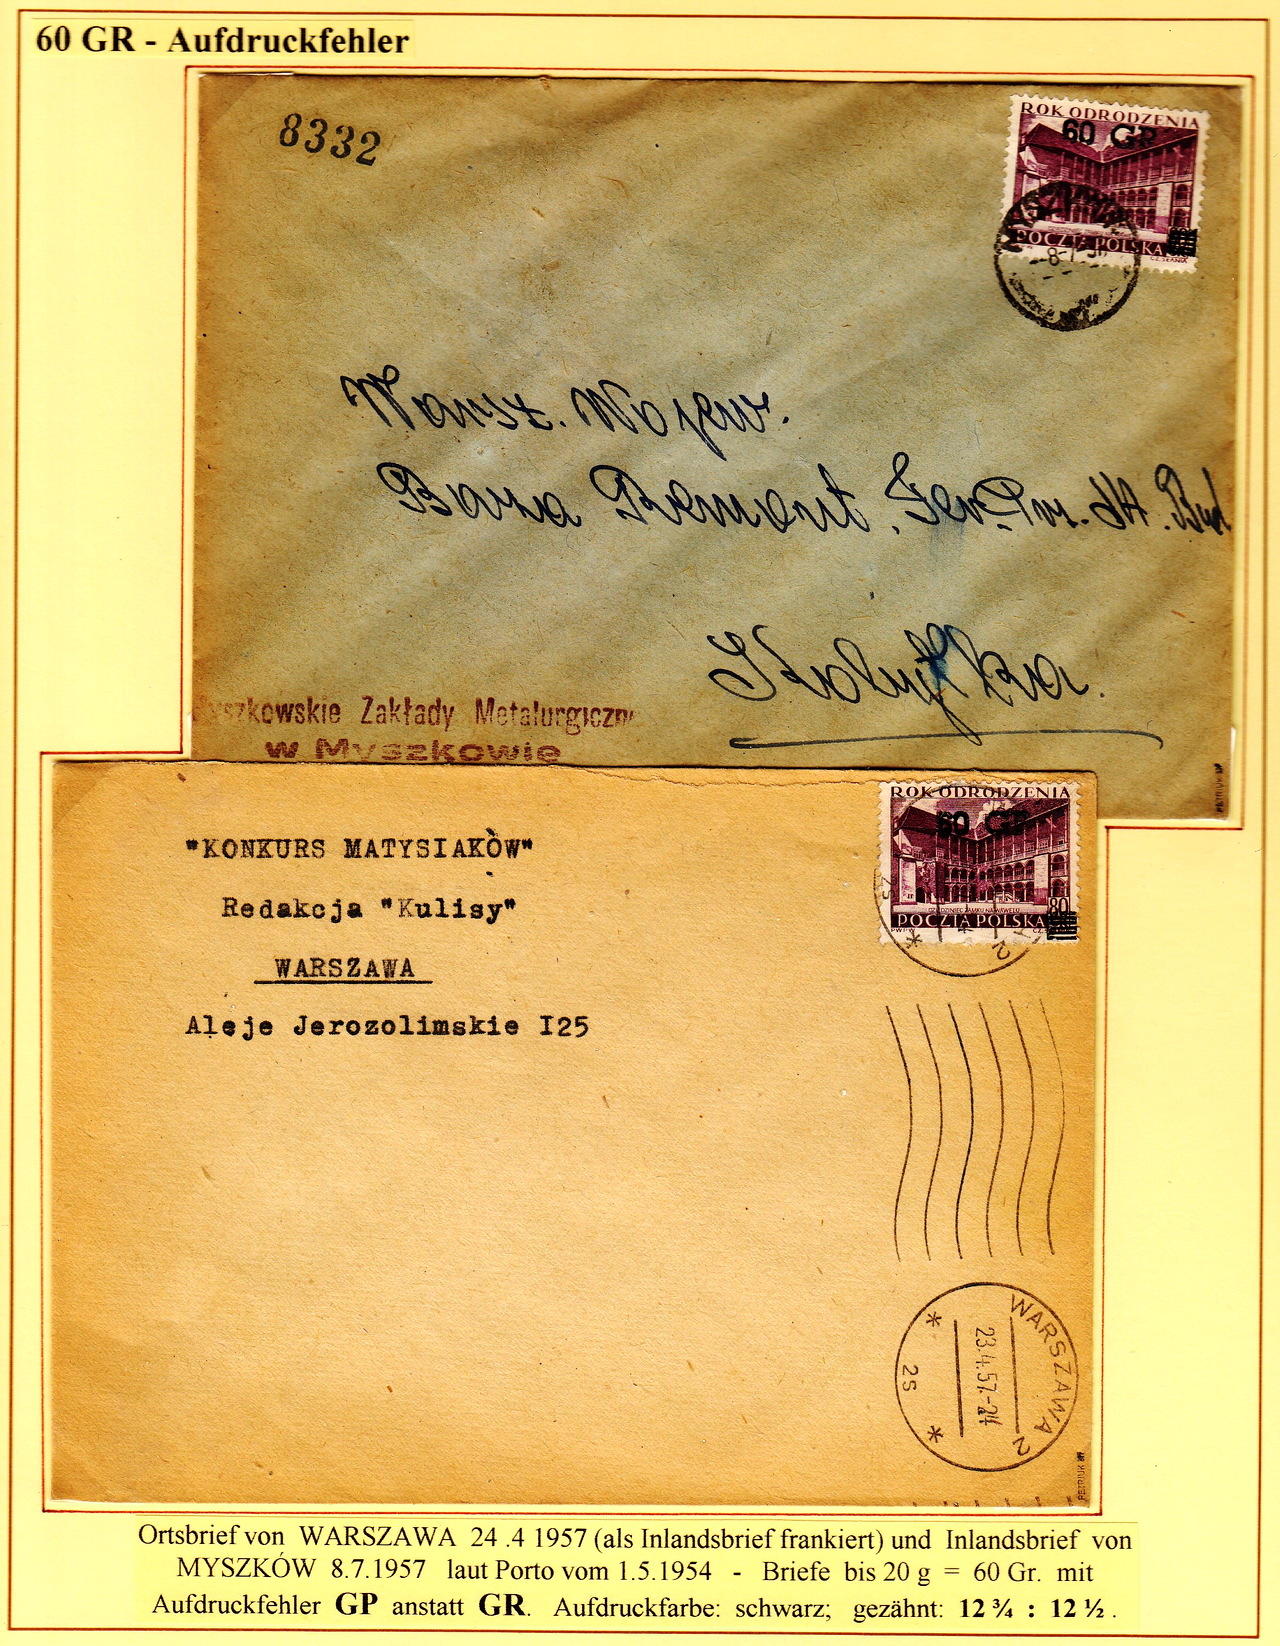 60 GR - Aufdruckfehler
8332
ROK ODRODZENIA
60 GP
POCZTA POLSKA
Warsz. Wojew.
Baza Remont
Myszkowskie Zakłady Metalurgiczn
w Myszkowie
PETRIUK
"KONKURS MATYSIAKÒW"
Redakcja "Kulisy"
WARSZAWA
Aleje Jerozolimskie I25
ROK ODRODZENIA
60 GP
80
DZIEDZINIEC ZAMKU NA WAWELU
POCZTA POLSKA
PWPW
2S
WARSZAWA 2
23.4.57.-24
2S
PETRIUK
Ortsbrief von WARSZAWA 24 .4 1957 (als Inlandsbrief frankiert) und Inlandsbrief von
MYSZKÓW 8.7.1957 laut Porto vom 1.5.1954 - Briefe bis 20 g = 60 Gr. mit
Aufdruckfehler GP anstatt GR. Aufdruckfarbe: schwarz; gezähnt: 12 ¾ : 12 ½ .